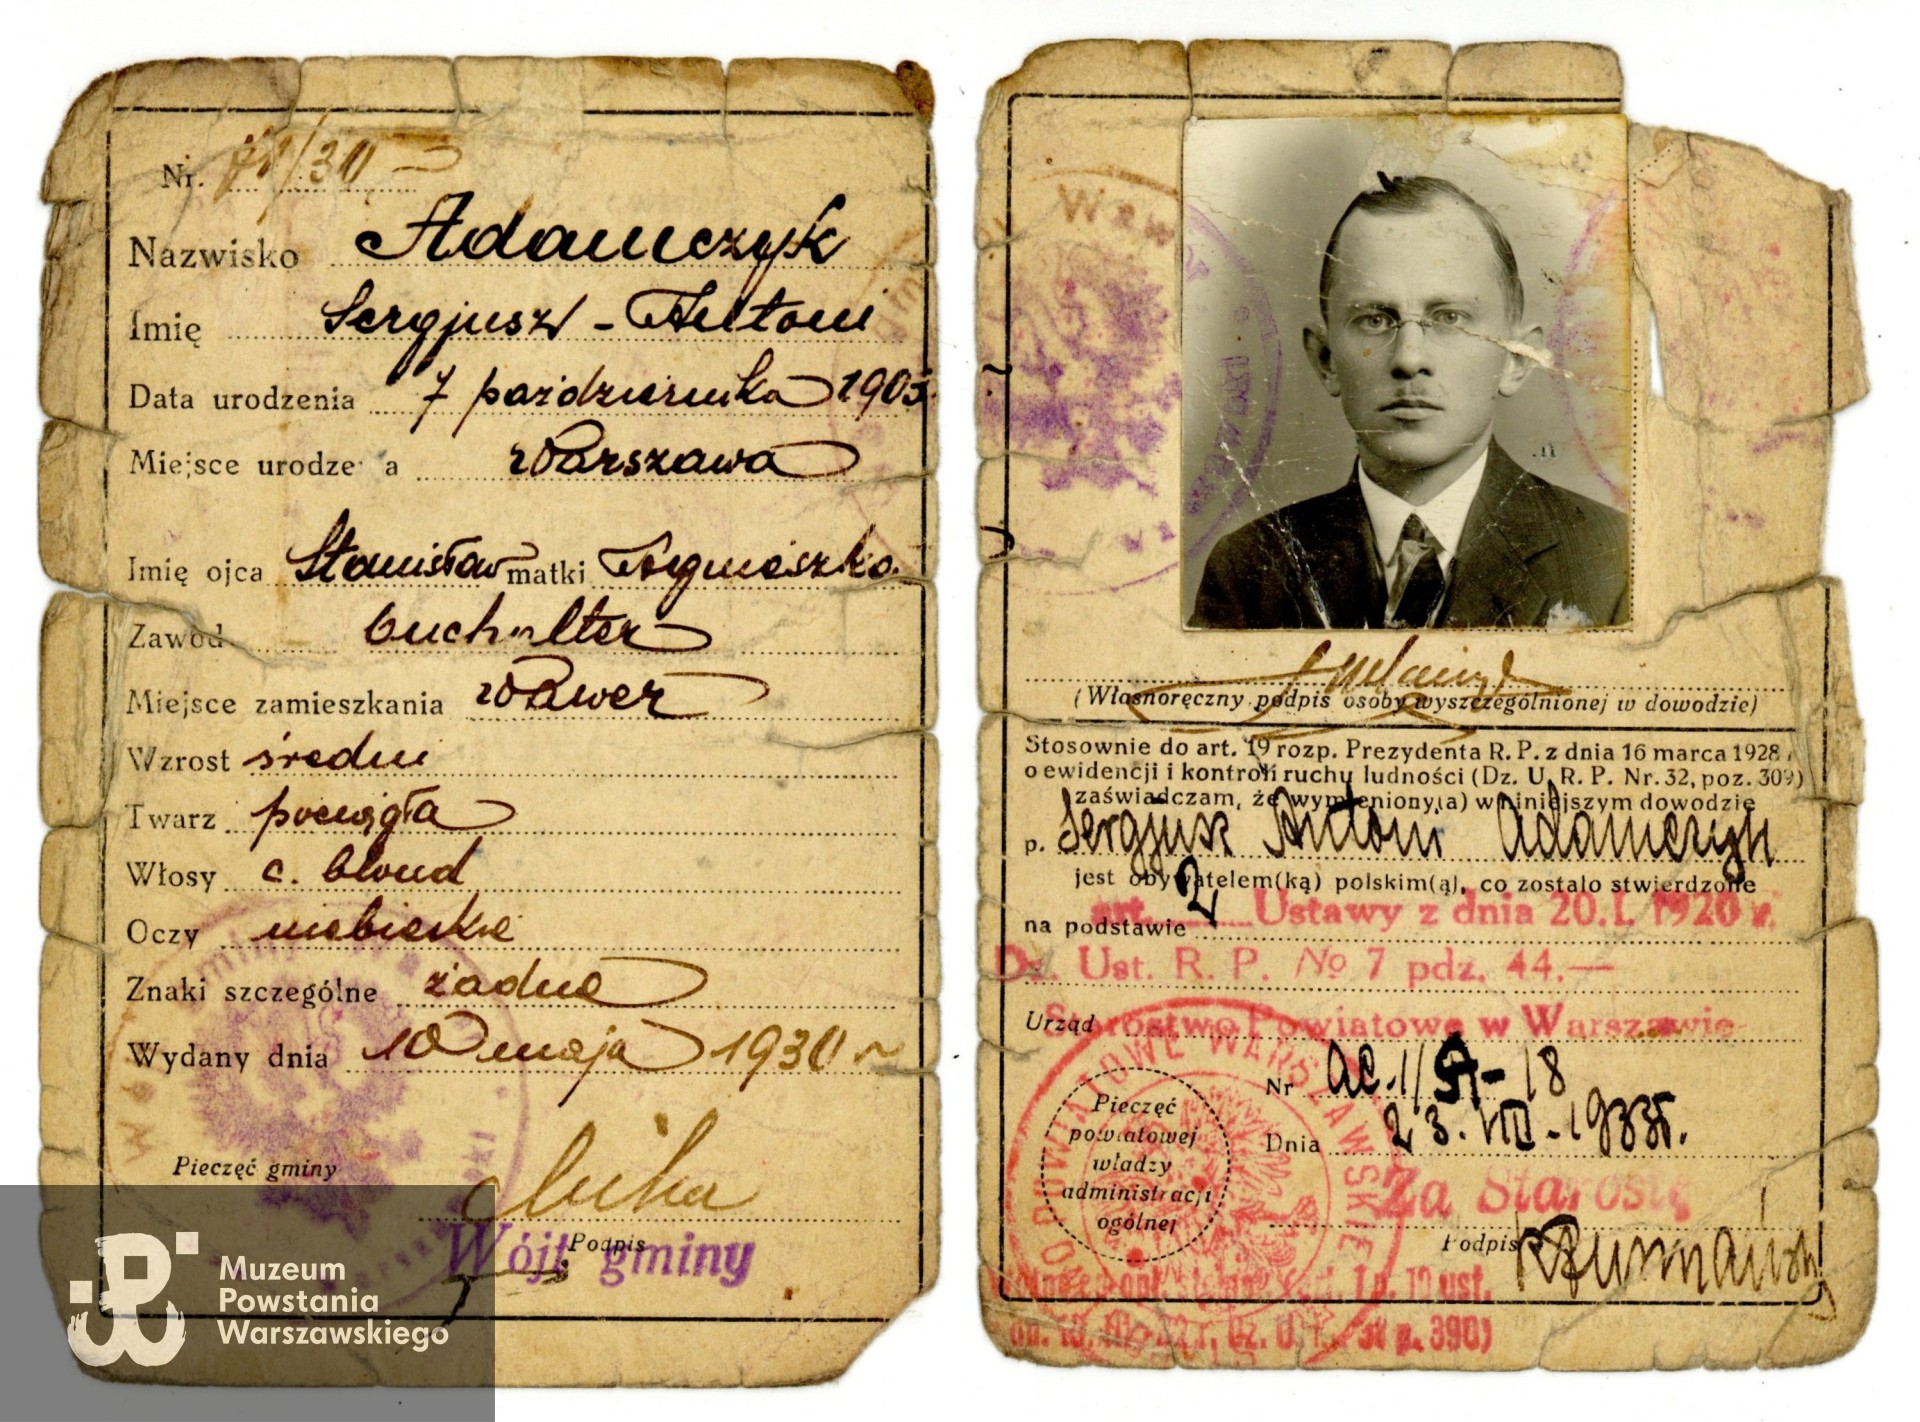 Nr. /30
Nazwisko Adamczyk
Imię Sergjusz - Antoni
Data urodzenia 7 października 1905
Miejsce urodze a Warszawa
Imię ojca Stanisław matki Agnieszka
Zawód buchalter
Miejsce zamieszkania Wawer
Wzrost średni
Twarz pociągła
Włosy c. blond
Oczy niebieskie
Znaki szczególne żadne
Wydany dnia 10 maja 1930
Pieczęć gminy
Podpis
Wójt gminy
Muzeum
Powstania
Warszawskiego
(Własnoręczny podpis osoby wyszczególnionej w dowodzie)
Stosownie do art. 19 rozp. Prezydenta R. P. z dnia 16 marca 1928
o ewidencji i kontroli ruchu ludności (Dz. U. R. P. Nr. 32, poz. 309)
zaświadczam, że wymieniony(a) w niniejszym dowodzie
p. Sergjusz Antoni Adamczyk
jest obywatelem(ką) polskim(ą), co zostało stwierdzone
na podstawie art. 2 Ustawy z dnia 20.I. 1920 r.
Dz. Ust. R. P. № 7 pdz. 44.—
Urząd Starostwo Powiatowe w Warszawie
Nr AC.1/ - 18
Dnia 23.VIII-1933r.
Pieczęć
powiatowej
władzy
administracji
ogólnej
Za Starostę
Podpis